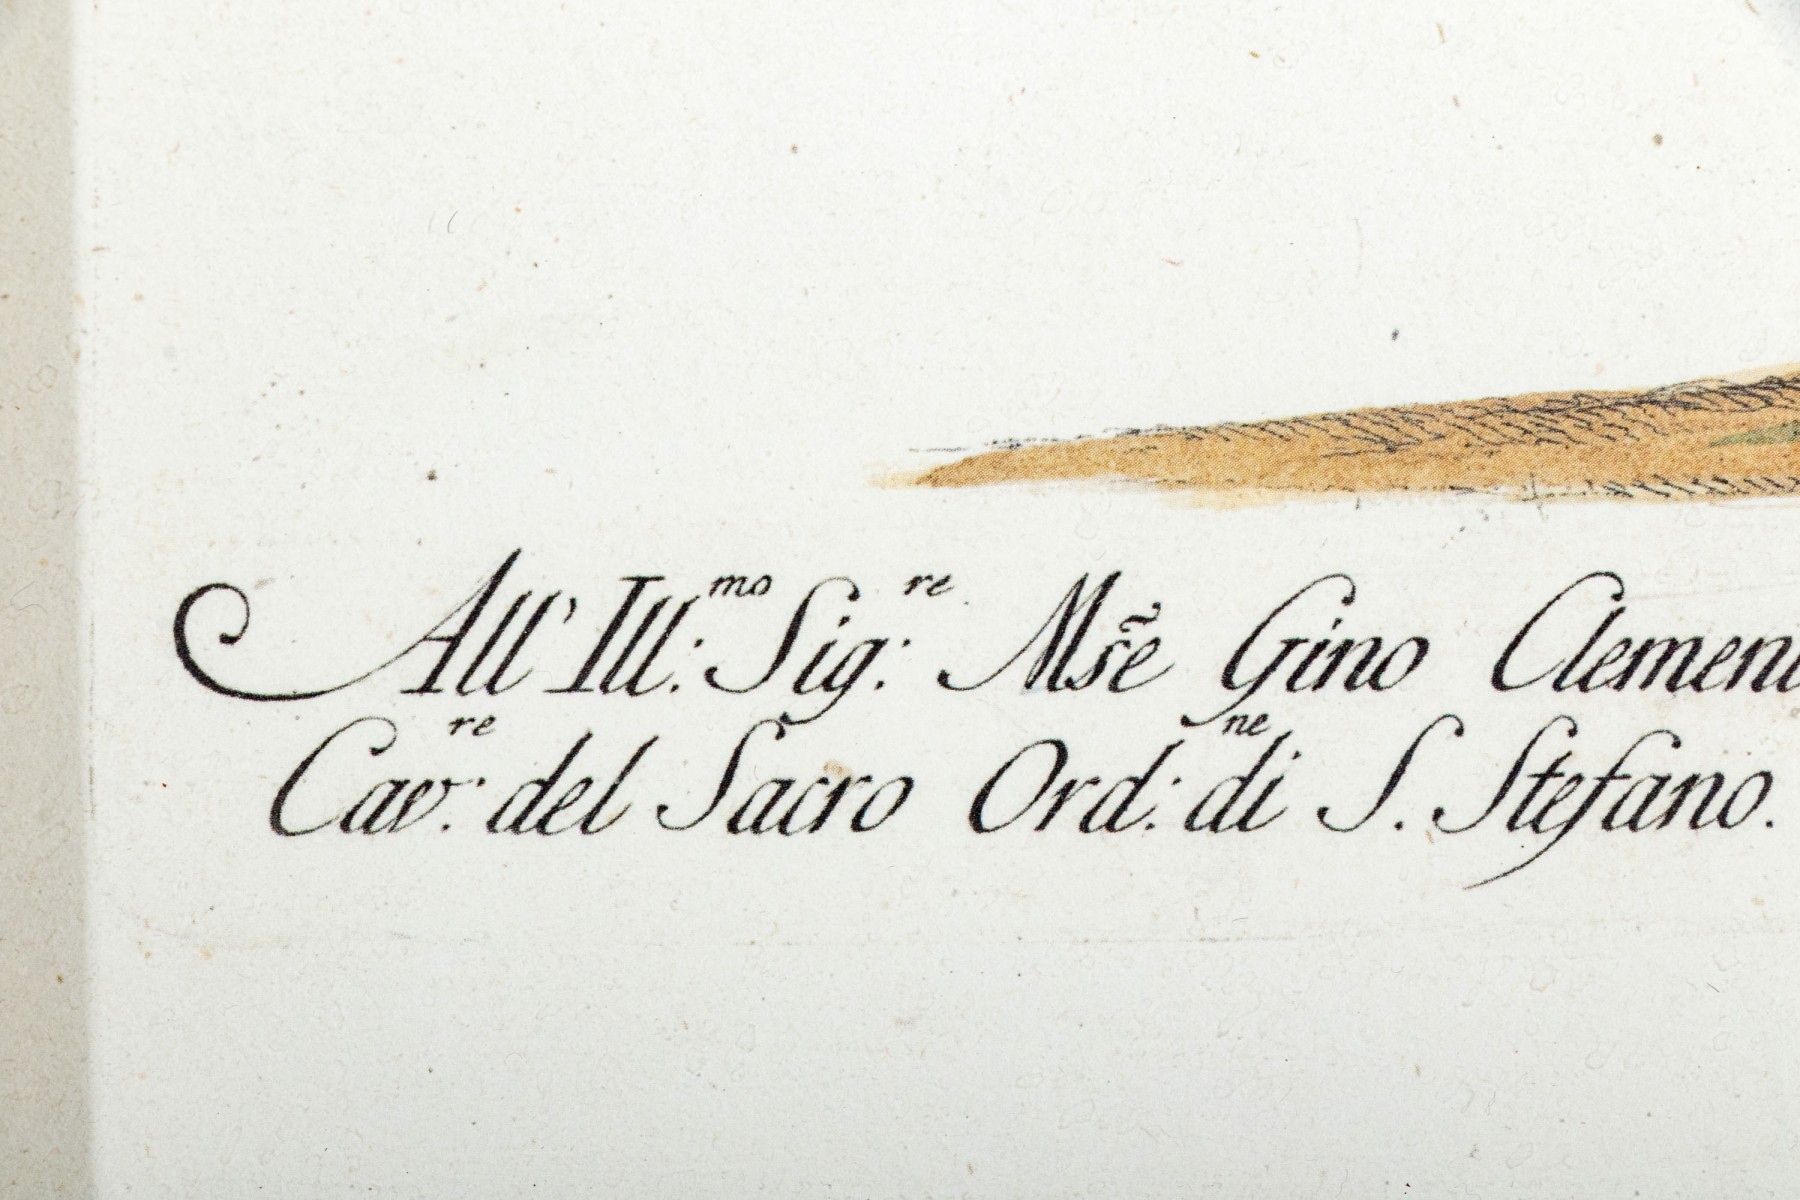 All' Ill:mo Sig:re Msẽ Gino Clemen
Cav:re del Sacro Ord:ne di S. Stefano.